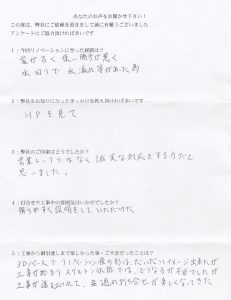 あなたのお声をお聞かせ下さい！
この度は、弊社にご依頼を頂きまして誠に有難うございました
アンケートにご協力頂ければ幸いです
1：今回リノベーションに至った経緯は？
家が古く使い勝手が悪く
水回りで水漏れ等があった為
2：弊社をお知りになったきっかけを教えて頂ければ幸いです
HPを見て
3：弊社のご印象はどうでしたか？
営業トークではなく誠実な対応をする方だと
思いました。
4：担当者や工事中の雰囲気はいかがでしたか？
解りやすく説明をしていただけた
5：工事から御引渡しまで楽しかった事・ご不足だったことは？
3Dパースでリノベーション後の形は、だいたいイメージ出来たが
工事が始まりスケルトン状態では、どうなるか不安でしたが
工事が進むにつれて、毎週の打合せが楽しくなってきた